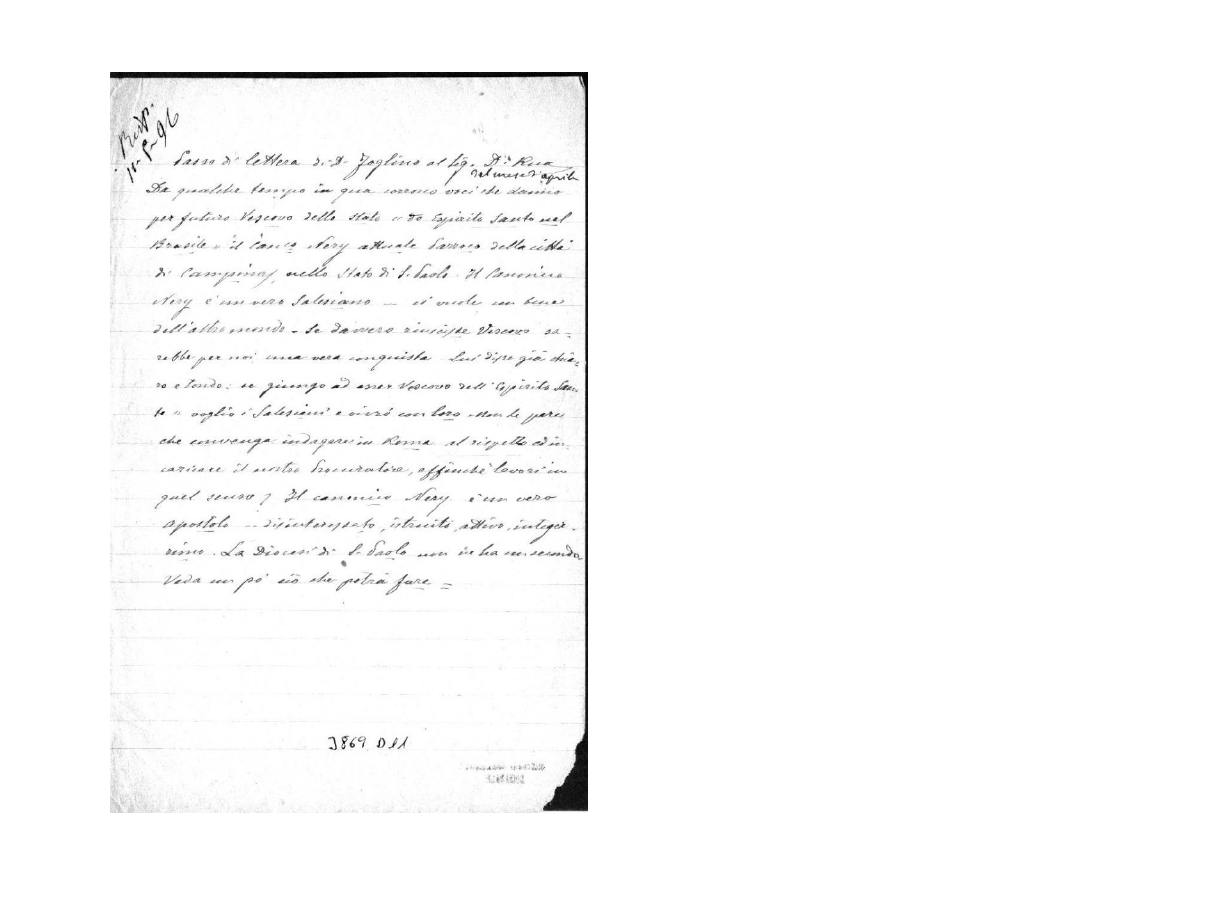 Risp.
11-5-96
Passo di lettera di D. Foglino al Sig. D. Rua
del mese d'aprile
Da qualche tempo in qua corrono voci che danno
per futuro Vescovo dello Stato "do Espirito Santo nel
Brasile" il Canco Nery attuale Parroco della città
di Campinas, nello Stato di S. Paolo. Il Canonico
Nery è un vero Salesiano — ci vuole un bene
dell'altro mondo. Se davvero riuscisse Vescovo sa-
rebbe per noi una vera conquista. Lui disse già chia-
ro e tondo: se giungo ad esser Vescovo dell'Espirito San-
to " voglio i Salesiani e vivrò con loro. Non le pare
che convenga indagare in Roma al rispetto ed in-
caricare il nostro Procuratore, affinchè lavori in
quel senso? Il canonico Nery è un vero
apostolo — disinteressato, istruito, attivo, integer-
rimo. La Diocesi di S. Paolo non ne ha un secondo.
Veda un pò ciò che potrà fare =
3869 D11